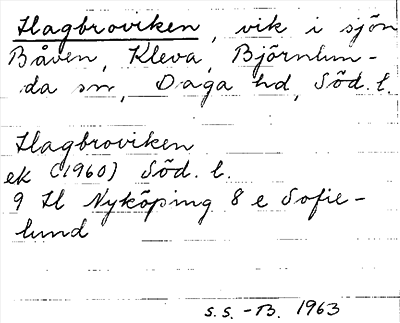 Hagbroviken, vik i sjön
Båven, Kleva, Björnlun-
da sn, Daga hd, Söd. l.
Hagbroviken
ek (1960) Söd. l.
9 H Nyköping 8 e Sofie-
lund
S.S.-B. 1963